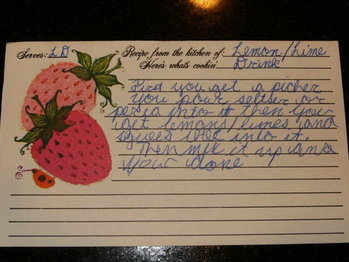 Serves: LD Recipe from the kitchen of: Lemon/Lime
Here's whats cookin': Drink
First you get a picher
you pour seltser or
peria into it then you
get lemons/limes and
sqees
into it.
Then mix it up and
your done